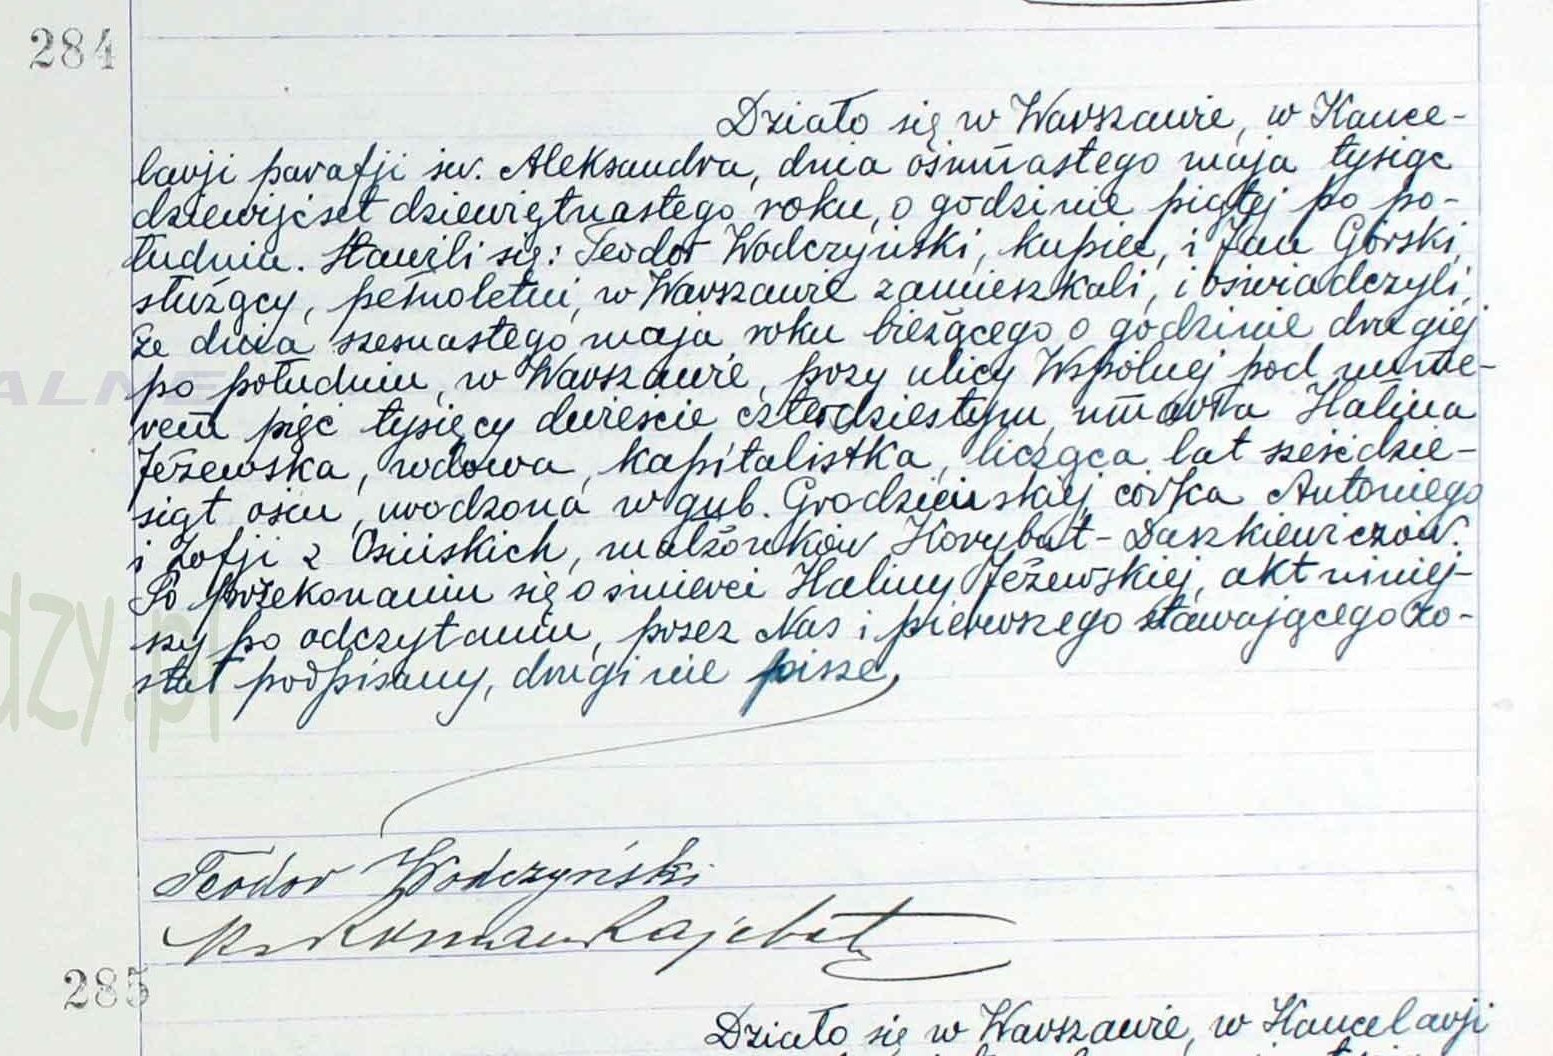 284
Działo się w Warszawie, w Kance-
larji parafji św. Aleksandra, dnia ośmnastego maja tysiąc
dziewięćset dziewiętnastego roku, o godzinie piątej po po-
łudniu. Stawili się: Teodor Wodczyński, kupiec, i Jan Górski,
służący, pełnoletni, w Warszawie zamieszkali, i oświadczyli,
że dnia szesnastego maja roku bieżącego o godzinie drugiej
po południu, w Warszawie, przy ulicy Wspólnej pod nume-
rem pięć tysięcy dwieście czterdziestym, umarła Halina
Jeżewska, wdowa, kapitalistka, licząca lat sześćdzie-
siąt ośm, urodzona w gub. Grodzieńskiej, córka Antoniego
i Zofji z Osińskich, małżonków Korybut-Daszkiewiczów.
Po przekonaniu się o śmierci Haliny Jeżewskiej, akt niniej-
szy po odczytaniu, przez Nas i pierwszego stawającego zo-
stał podpisany, drugi nie pisze,
Teodor Wodczyński
Ks Roman Rajchert
285
Działo się w Warszawie, w Kancelarji
ALNE
dzy.pl